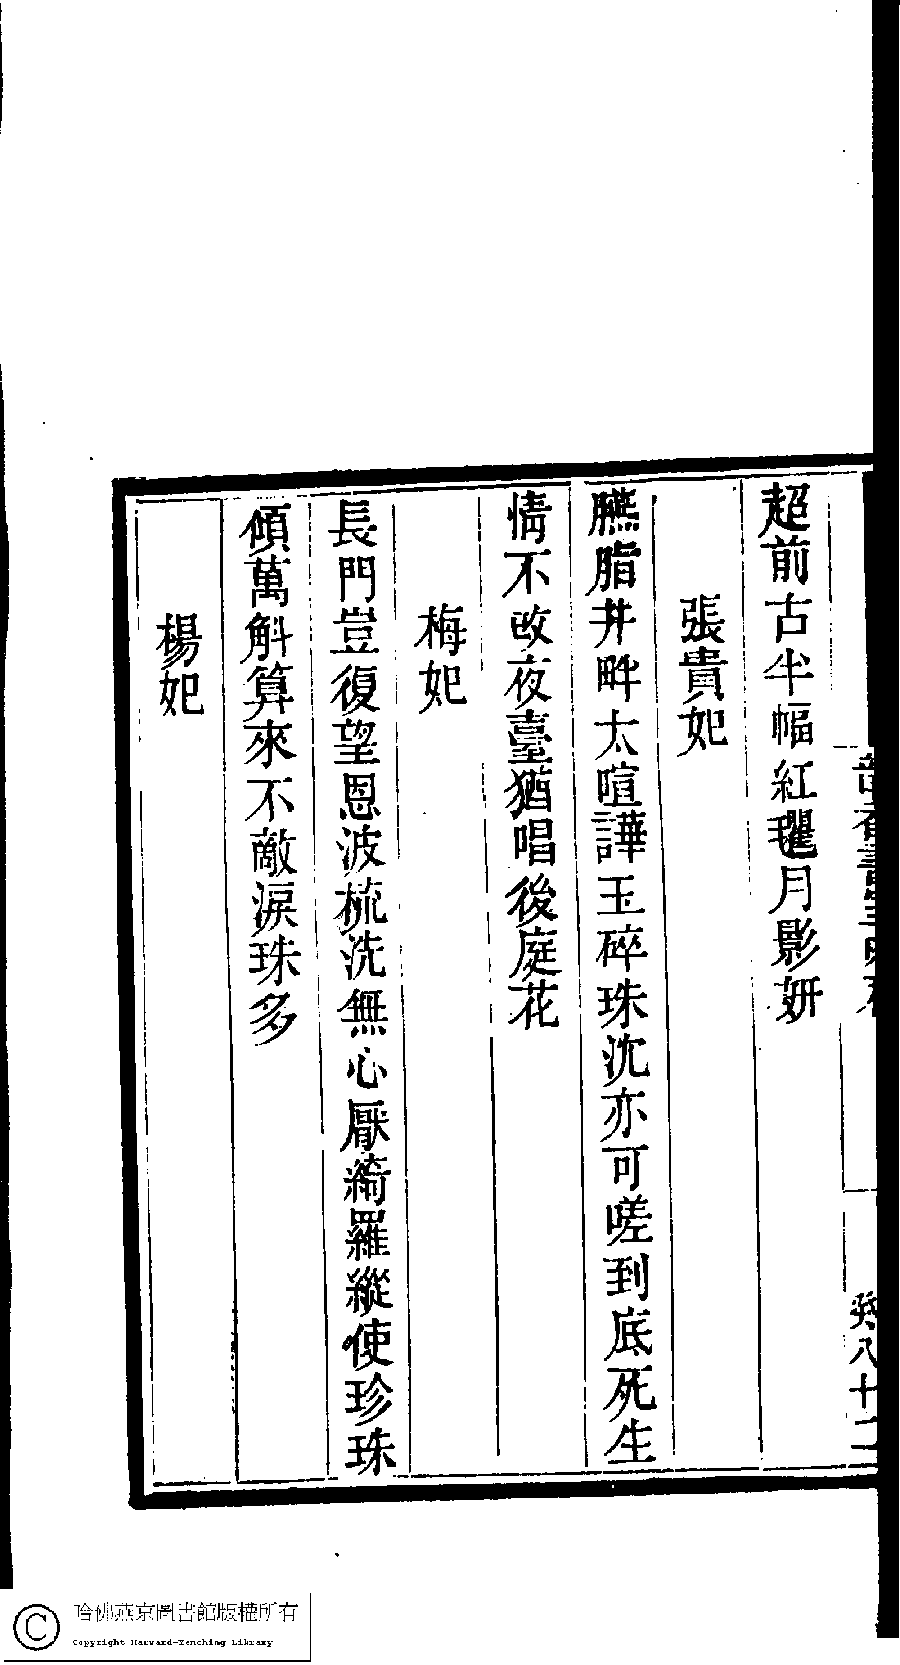 超前古半幅紅氍月影妍
張貴妃
臙脂井畔太喧譁玉碎珠沈亦可嗟到底死生
情不改夜臺猶唱後庭花
梅妃
長門豈復望恩波梳洗無心厭綺羅縱使珍珠
傾萬斛算來不敵淚珠多
楊妃
癸八十二
哈佛燕京圖書館版權所有
Copyright Harvard-Yenching Library